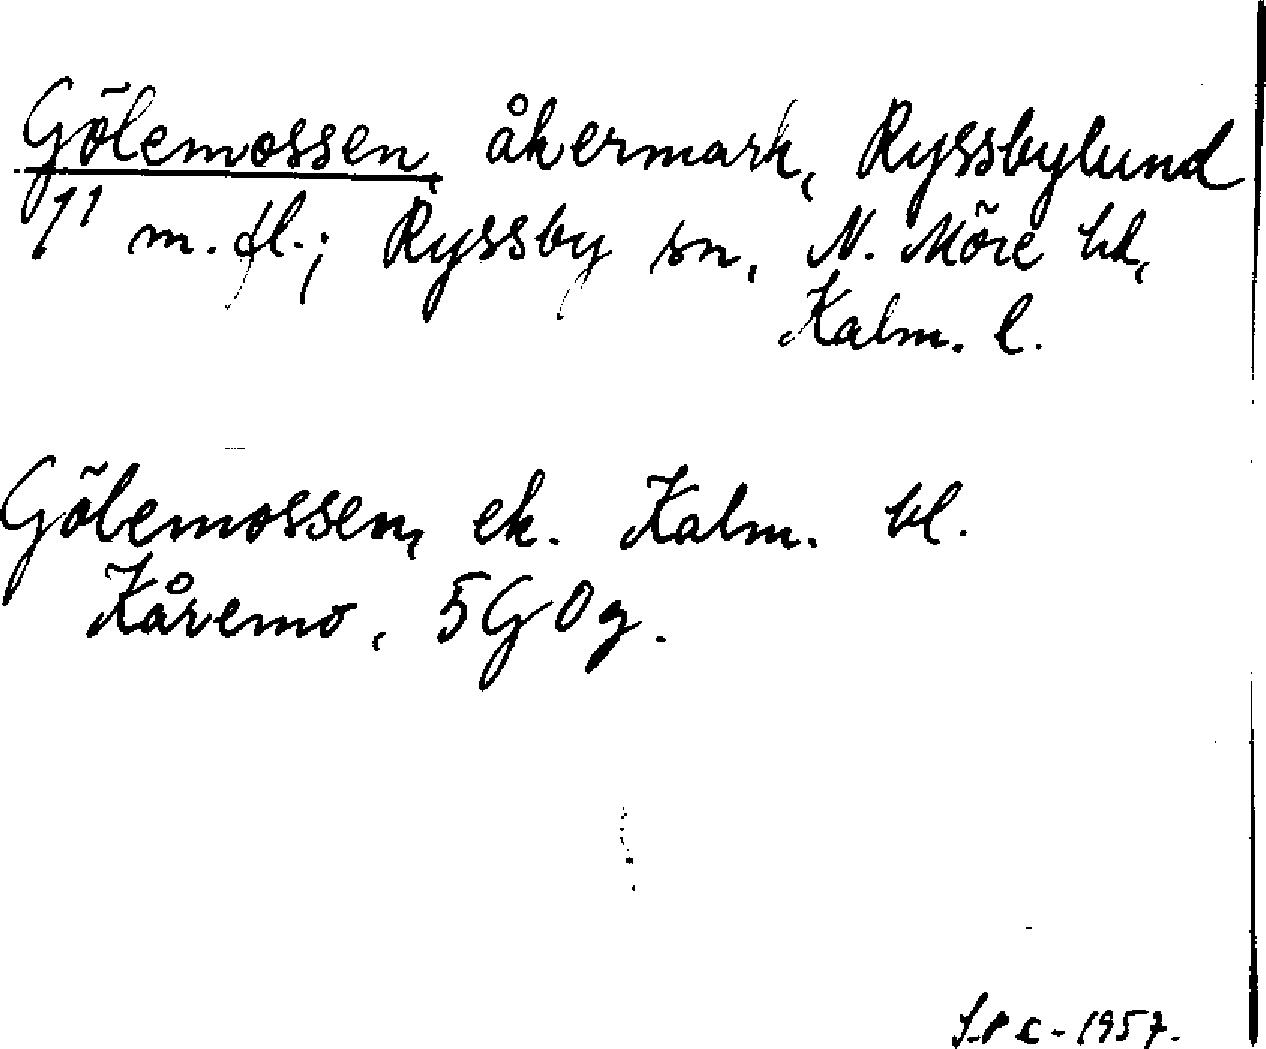 Gölemossen, åkermark, Ryssbylund
1¹ m. fl.; Ryssby sn, N. Möre hd,
Kalm. l.
Gölemossen, ek. Kalm. bl.
Kåremo, 5G0g.
1957.